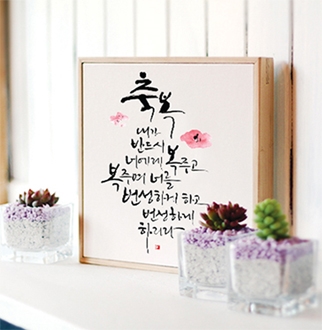 축복
내가
반드시
너에게 복주고
복주며 너를
번성하게 하고
번성하게
하리라